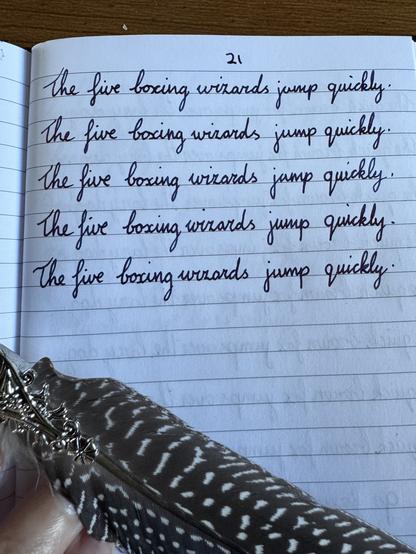 21
The five boxing wizards jump quickly.
The five boxing wizards jump quickly.
The five boxing wizards jump quickly.
The five boxing wizards jump quickly.
The five boxing wizards jump quickly.